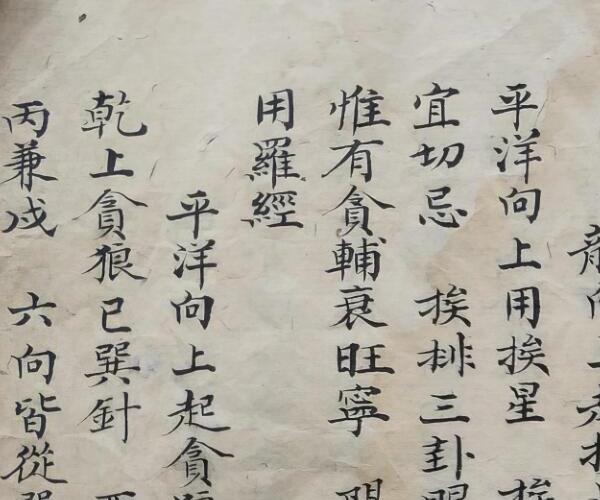 龍向上
平洋向上用挨星 挨
宜切忌 挨排三卦
惟有貪輔衰旺寧
用羅經
平洋向上起貪
乾上貪狼巳巽針
丙兼戌 六向皆從